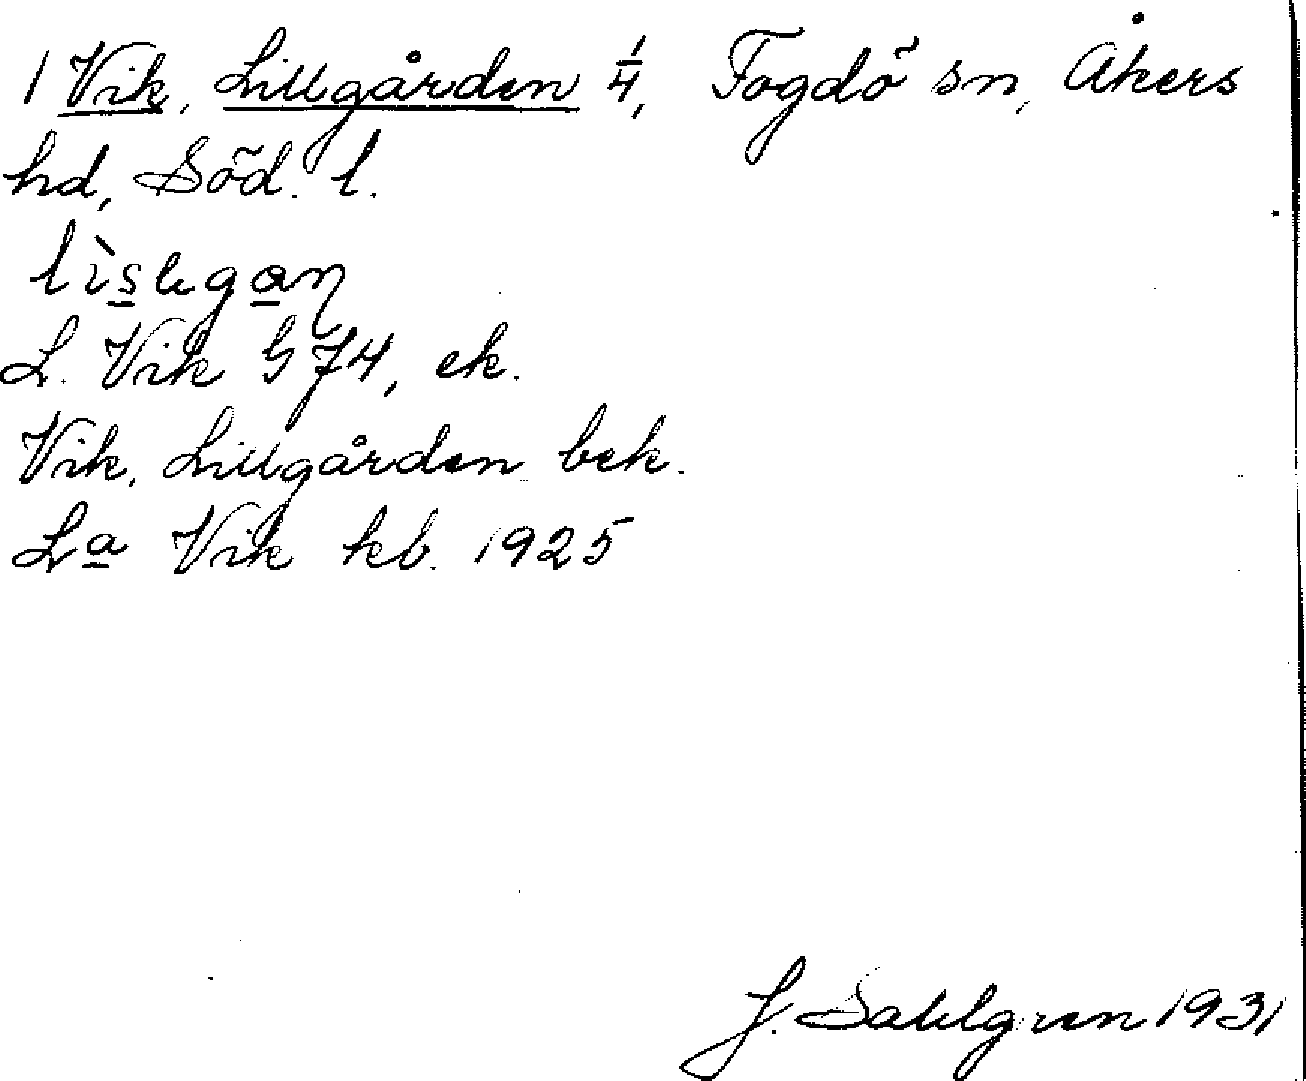 1 Vik, Lillgården 1/4, Fogdö sn, Åkers
hd, Söd. l.
L. Vik G 74, ek.
Vik, Lillgården bek.
La Vik kb. 1925
J. Sahlgren 1931